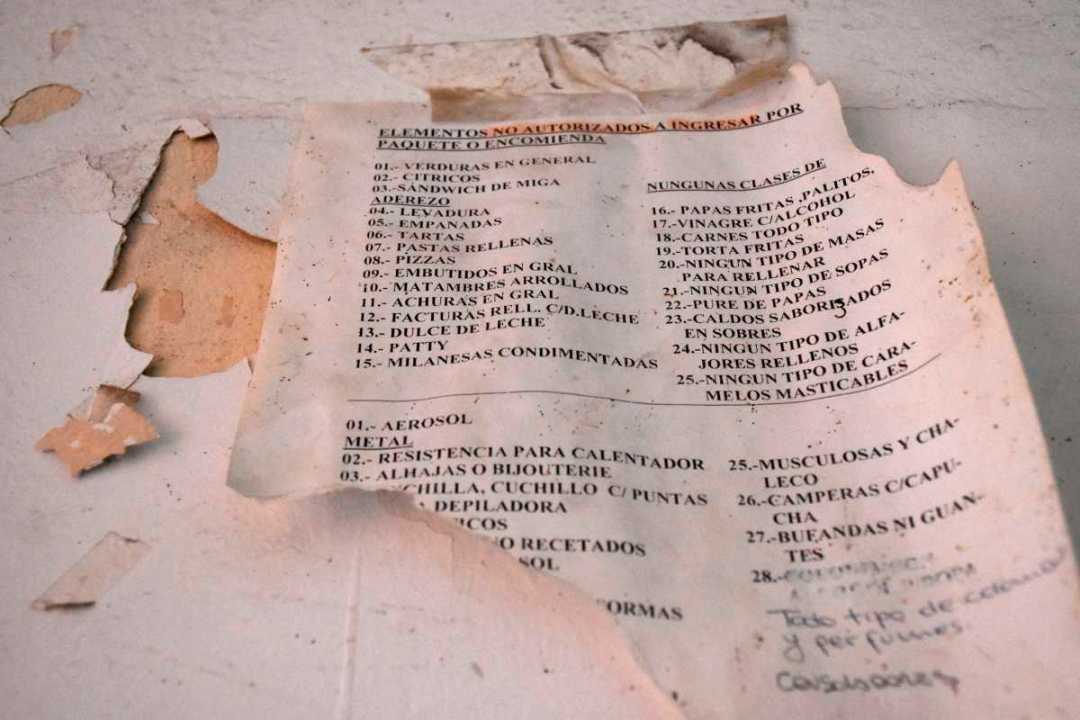 ELEMENTOS NO AUTORIZADOS A INGRESAR POR
PAQUETE O ENCOMIENDA
01.- VERDURAS EN GENERAL
02.- CITRICOS
03.-SANDWICH DE MIGA
ADEREZO
04.- LEVADURA
05.- EMPANADAS
06.- TARTAS
07.- PASTAS RELLENAS
08.- PIZZAS
09.- EMBUTIDOS EN GRAL
10.- MATAMBRES ARROLLADOS
11.- ACHURAS EN GRAL
12.- FACTURAS RELL. C/D.LECHE
13.- DULCE DE LECHE
14.- PATTY
15.- MILANESAS CONDIMENTADAS
NUNGUNAS CLASES DE
16.- PAPAS FRITAS ,PALITOS.
17.-VINAGRE C/ALCOHOL
18.-CARNES TODO TIPO
19.-TORTA FRITAS
20.-NINGUN TIPO DE MASAS
PARA RELLENAR
21.-NINGUN TIPO DE SOPAS
22.-PURE DE PAPAS
23.-CALDOS SABORISADOS
EN SOBRES
24.-NINGUN TIPO DE ALFA-
JORES RELLENOS
25.-NINGUN TIPO DE CARA-
MELOS MASTICABLES
01.- AEROSOL
METAL
02.- RESISTENCIA PARA CALENTADOR
03.- ALHAJAS O BIJOUTERIE
CHILLA, CUCHILLO C/ PUNTAS
DEPILADORA
ICOS
NO RECETADOS
SOL
ORMAS
25.-MUSCULOSAS Y CHA-
LECO
26.-CAMPERAS C/CAPU-
CHA
27.-BUFANDAS NI GUAN-
TES
28.-
Todo tipo de
y perfumes.